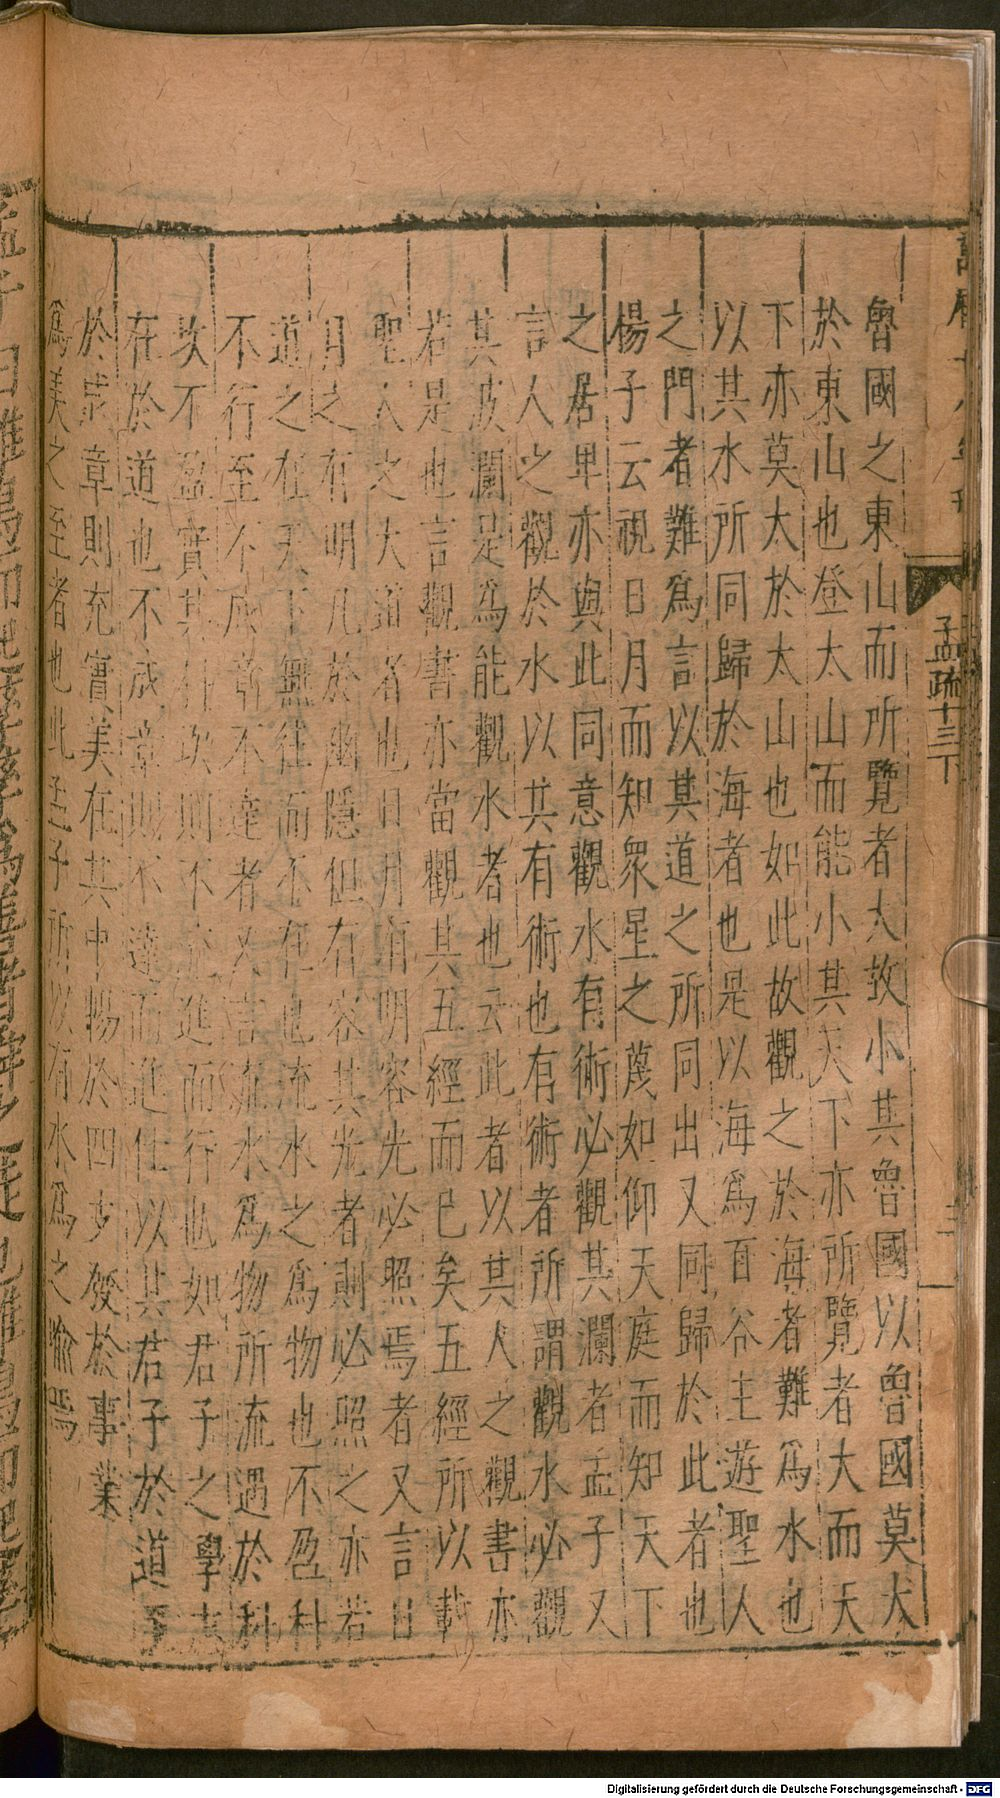 魯國之東山而所覽者大故小其魯國以魯國莫大
於東山也登太山而能小其天下亦所覽者大而天
下亦莫太於太山也如此故觀之於海者難爲水也
以其水所同歸於海者也是以海爲百谷王遊聖人
之門者難爲言以其道之所同出又同歸於此者也
楊子云視日月而知衆星之蔑如仰天庭而知天下
之居卑亦與此同意觀水有術必觀其瀾者孟子又
言人之觀於水以其有術也有術者所謂觀水必觀
其波瀾是爲能觀水者也云此者以其人之觀書亦
若是也言觀書亦當觀其五經而已矣五經所以載
聖人之大道者也日月有明容光必照焉者又言日
月之有明凡於幽隱但有容其光者則必照之亦若
道之在天下無往而不在也流水之爲物也不盈科
不行至不成章不達者又言流水爲物所流遇於科
坎不盈實其科坎則不流進而行也如君子之學志
在於道也不成章則不達而進仕以其君子於道至
於成章則充實美在其中暢於四支發於事業
爲美之至者也此孟子所以有水爲之喻焉
孟疏十三下
三
Digitalisierung gefördert durch die Deutsche Forschungsgemeinschaft - DFG